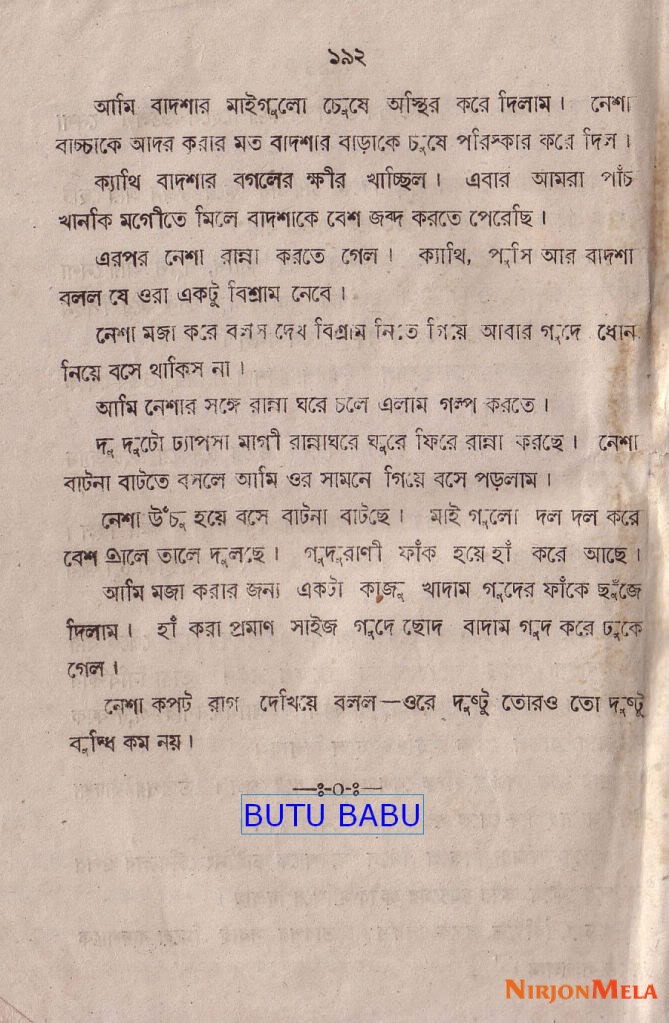 ১৯২
আমি বাদশার মাইগুলো চেুষে অস্থির করে দিলাম। নেশা
বাচ্চাকে আদর করার মত বাদশার বাড়াকে চুষে পরিস্কার করে দিল।
ক্যাথি বাদশার বগলের ক্ষীর খাচ্ছিল। এবার আমরা পাঁচ
খানকি মগেীতে মিলে বাদশাকে বেশ জব্দ করতে পেরেছি।
এরপর নেশা রান্না করতে গেল। ক্যাথি, পুসি আর বাদশা
বলল যে ওরা একটু বিশ্রাম নেবে।
নেশা মজা করে বলল দেখ বিশ্রাম নিতে গিয়ে আবার গুদে ধোন
নিয়ে বসে থাকিস না।
আমি নেশার সঙ্গে রান্না ঘরে চলে এলাম গল্প করতে।
দু দুটো ঢ্যাপসা মাগী রান্নাঘরে ঘুরে ফিরে রান্না করছে। নেশা
বাটনা বাটতে বসলে আমি ওর সামনে গিয়ে বসে পড়লাম।
নেশা উঁচু হয়ে বসে বাটনা বাটছে। মাই গুলো দল দল করে
বেশ তালে তালে দুলছে। গুদুরাণী ফাঁক হয়ে হাঁ করে আছে।
আমি মজা করার জন্য একটা কাজু খাদাম গুদের ফাঁকে ছুঁজে
দিলাম। হাঁ করা প্রমাণ সাইজ গুদে ছোদ বাদাম গুদ করে ঢুকে
গেল।
নেশা কপট রাগ দেখিয়ে বলল—ওরে দুষ্টু তোরও তো দুষ্টু
বুদ্ধি কম নয়।
—ঃ-০-ঃ—
BUTU BABU
NIRJONMELA